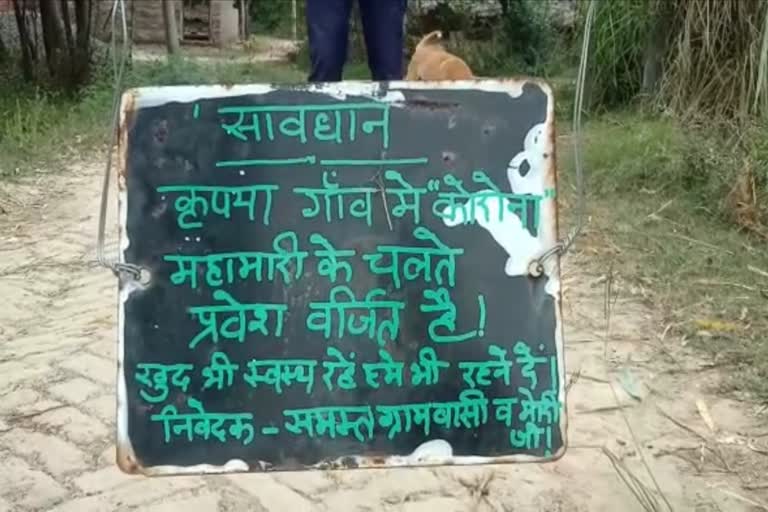 सावधान
कृपया गाँव मे "कोरोना"
महामारी के चलते
प्रवेश वर्जित है!
खुद भी स्वस्थ रहें हमे भी रहने दें।
निवेदक - समस्त ग्रामवासी व मोदी
जी!